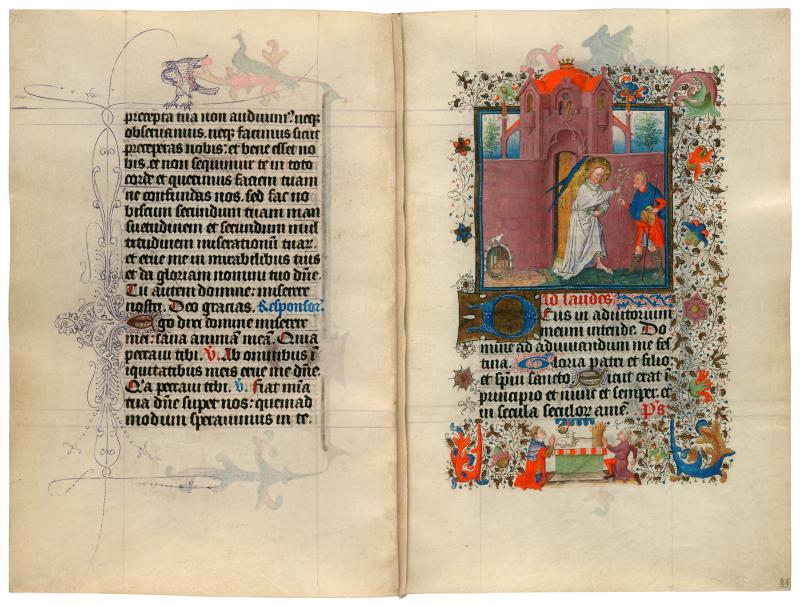 precepta tua non audiuim⁹. neq
obseruauimus. neq fecimus sicut
preceperas nobis: et bene esset no
bis. et non sequimur te in toto
corde et querimus faciem tuam
ne confundas nos. sed fac no
biscum secundum tuam man
suetudinem et secundum mul
titudinem miserationū tuar.
et erue me in mirabilibus tuis
et da gloriam nomini tuo dñe.
Tu autem domine: miserere
nostri. Deo gracias. Responsor.
Ego dixi domine miserere
mei: sana animam meā. Quia
peccaui tibi. V. Ab omnibus ī
iquitatibus meis erue me dñe.
Q'a peccaui tibi. V. Fiat mīa
tua dñe super nos: quemad
modum sperauimus in te.
Ad laudes.
Deus in adiutorium
meum intende. Do
mine ad adiuuandum me fes
tina. Gloria patri et filio:
et spiri sancto. Sicut erat ī
principio et nunc et semper. et
in secula seculor amē. Ps